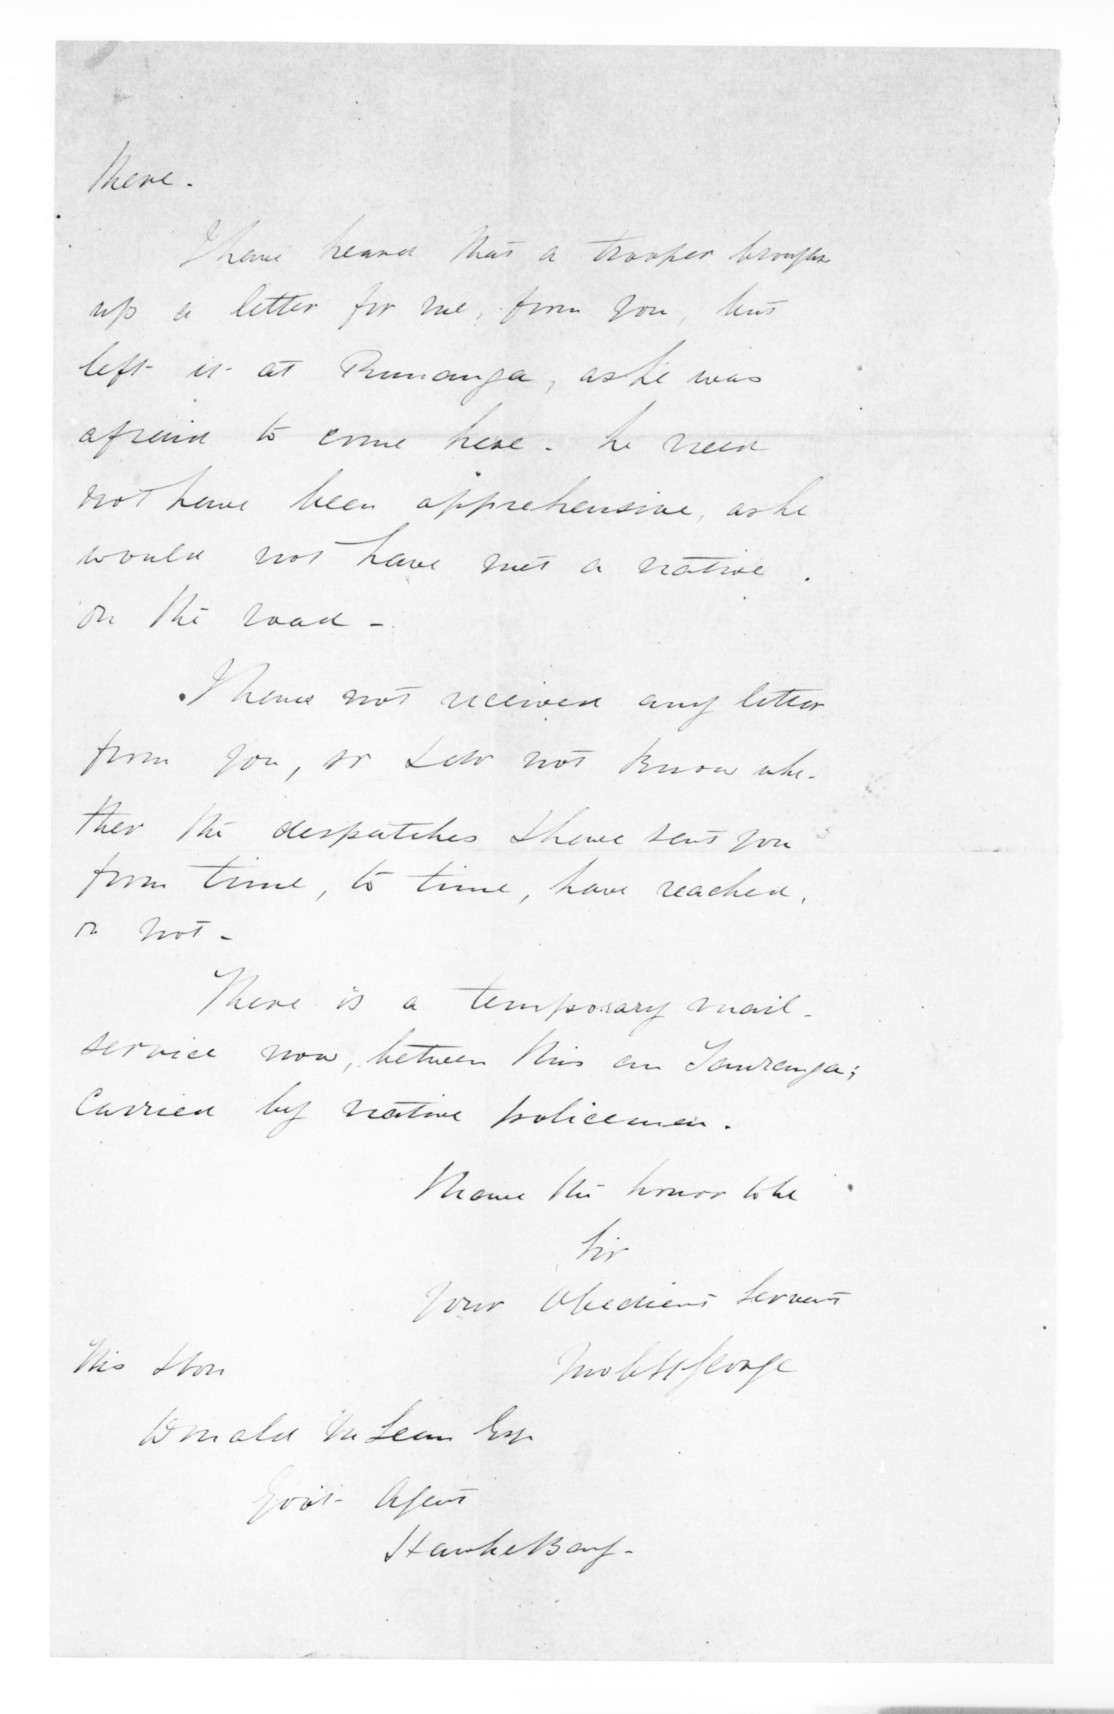 there.
I have heard that a trooper brought
up a letter for me, from you, but
left it at Runanga, as he was
afraid to come here. he need
not have been apprehensive, as he
would not have met a native.
on the road -
I have not received any letter
from you, or do not know whe-
ther the despatches I have sent you
from time, to time, have reached,
or not -
There is a temporary mail-
service now, between this an Tauranga;
carried by native policemen.
I have the honor to be
Sir
Your Obedient Servant
His Hon
Donald McLean Esqr
Govt- Agent
Hawke Bay-